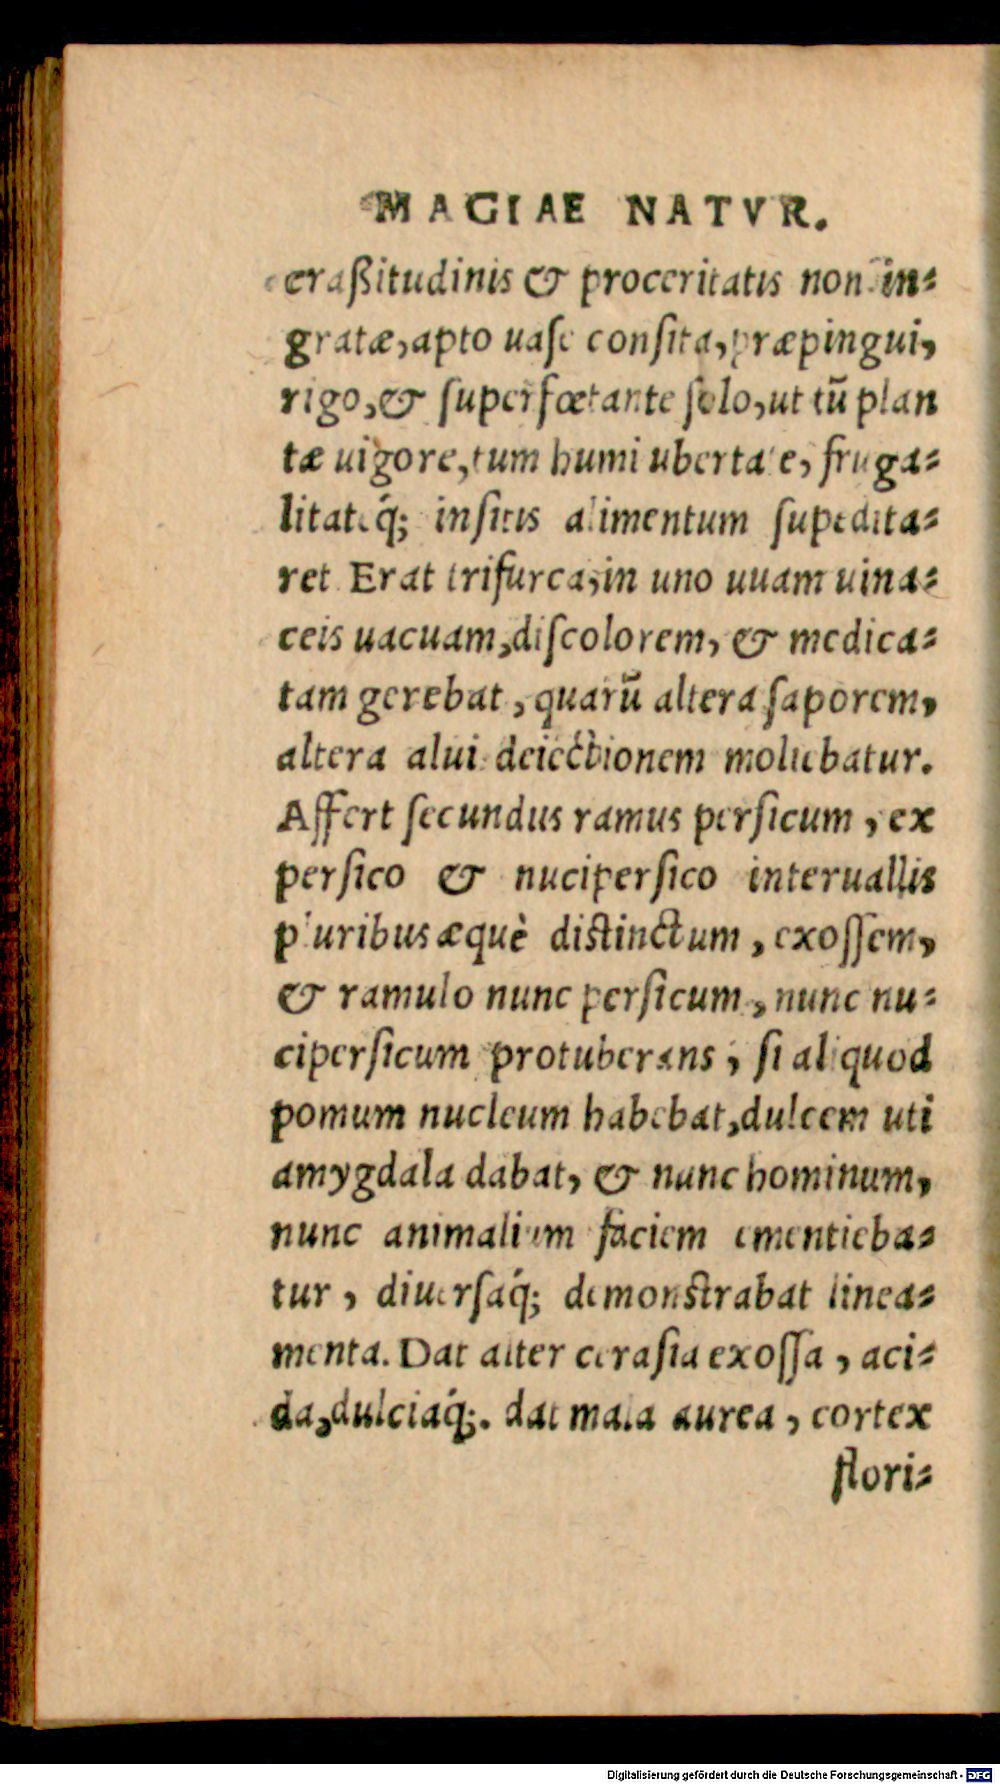 MAGIAE NATVR.
craßitudinis & proceritatis non in-
gratæ, apto uase consita, præpingui,
rigo, & superfœtante solo, ut tū plan
tæ uigore, tum humi ubertate, fruga-
litateq́; insitis alimentum supedita-
ret Erat trifurca, in uno uuam uina-
ceis uacuam, discolorem, & medica-
tam gerebat, quarū altera saporem,
altera alui deiectionem moliebatur.
Affert secundus ramus persicum, ex
persico & nucipersico interuallis
pluribus æquè distinctum, exossem,
& ramulo nunc persicum, nunc nu-
cipersicum protuberans, si aliquod
pomum nucleum habebat, dulcem uti
amygdala dabat, & nunc hominum,
nunc animalium faciem ementieba-
tur, diuersaq́; demonstrabat linea-
menta. Dat alter cerasia exossa, aci-
da, dulciaq́;. dat mala aurea, cortex
flori-
Digitalisierung gefördert durch die Deutsche Forschungsgemeinschaft - DFG